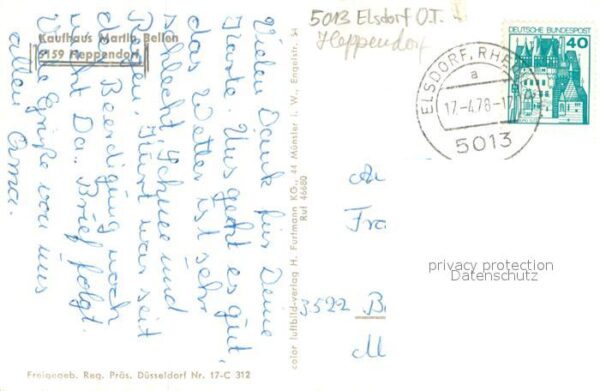 Kaufhaus Martin Bellen
5159 Heppendorf
5013 Elsdorf O.T.
Heppendorf
DEUTSCHE BUNDESPOST
40
ELSDORF, RHEINL
a
17.-4.78.-17
5013
Vielen Dank für Deine
Karte. Uns geht es gut,
das Wetter ist sehr
schlecht, Schnee und
Regen. Kurt war seit
der Beerdigung noch
nicht Da. Brief folgt.
Viele Grüße von uns
allen Oma.
color luftbild-verlag H. Furtmann KG., 44 Münster i. W., Engelstr. 54
Ruf 46680
An
Fra
3522 B
privacy protection
Datenschutz
Freigegeb. Reg. Präs. Düsseldorf Nr. 17-C 312